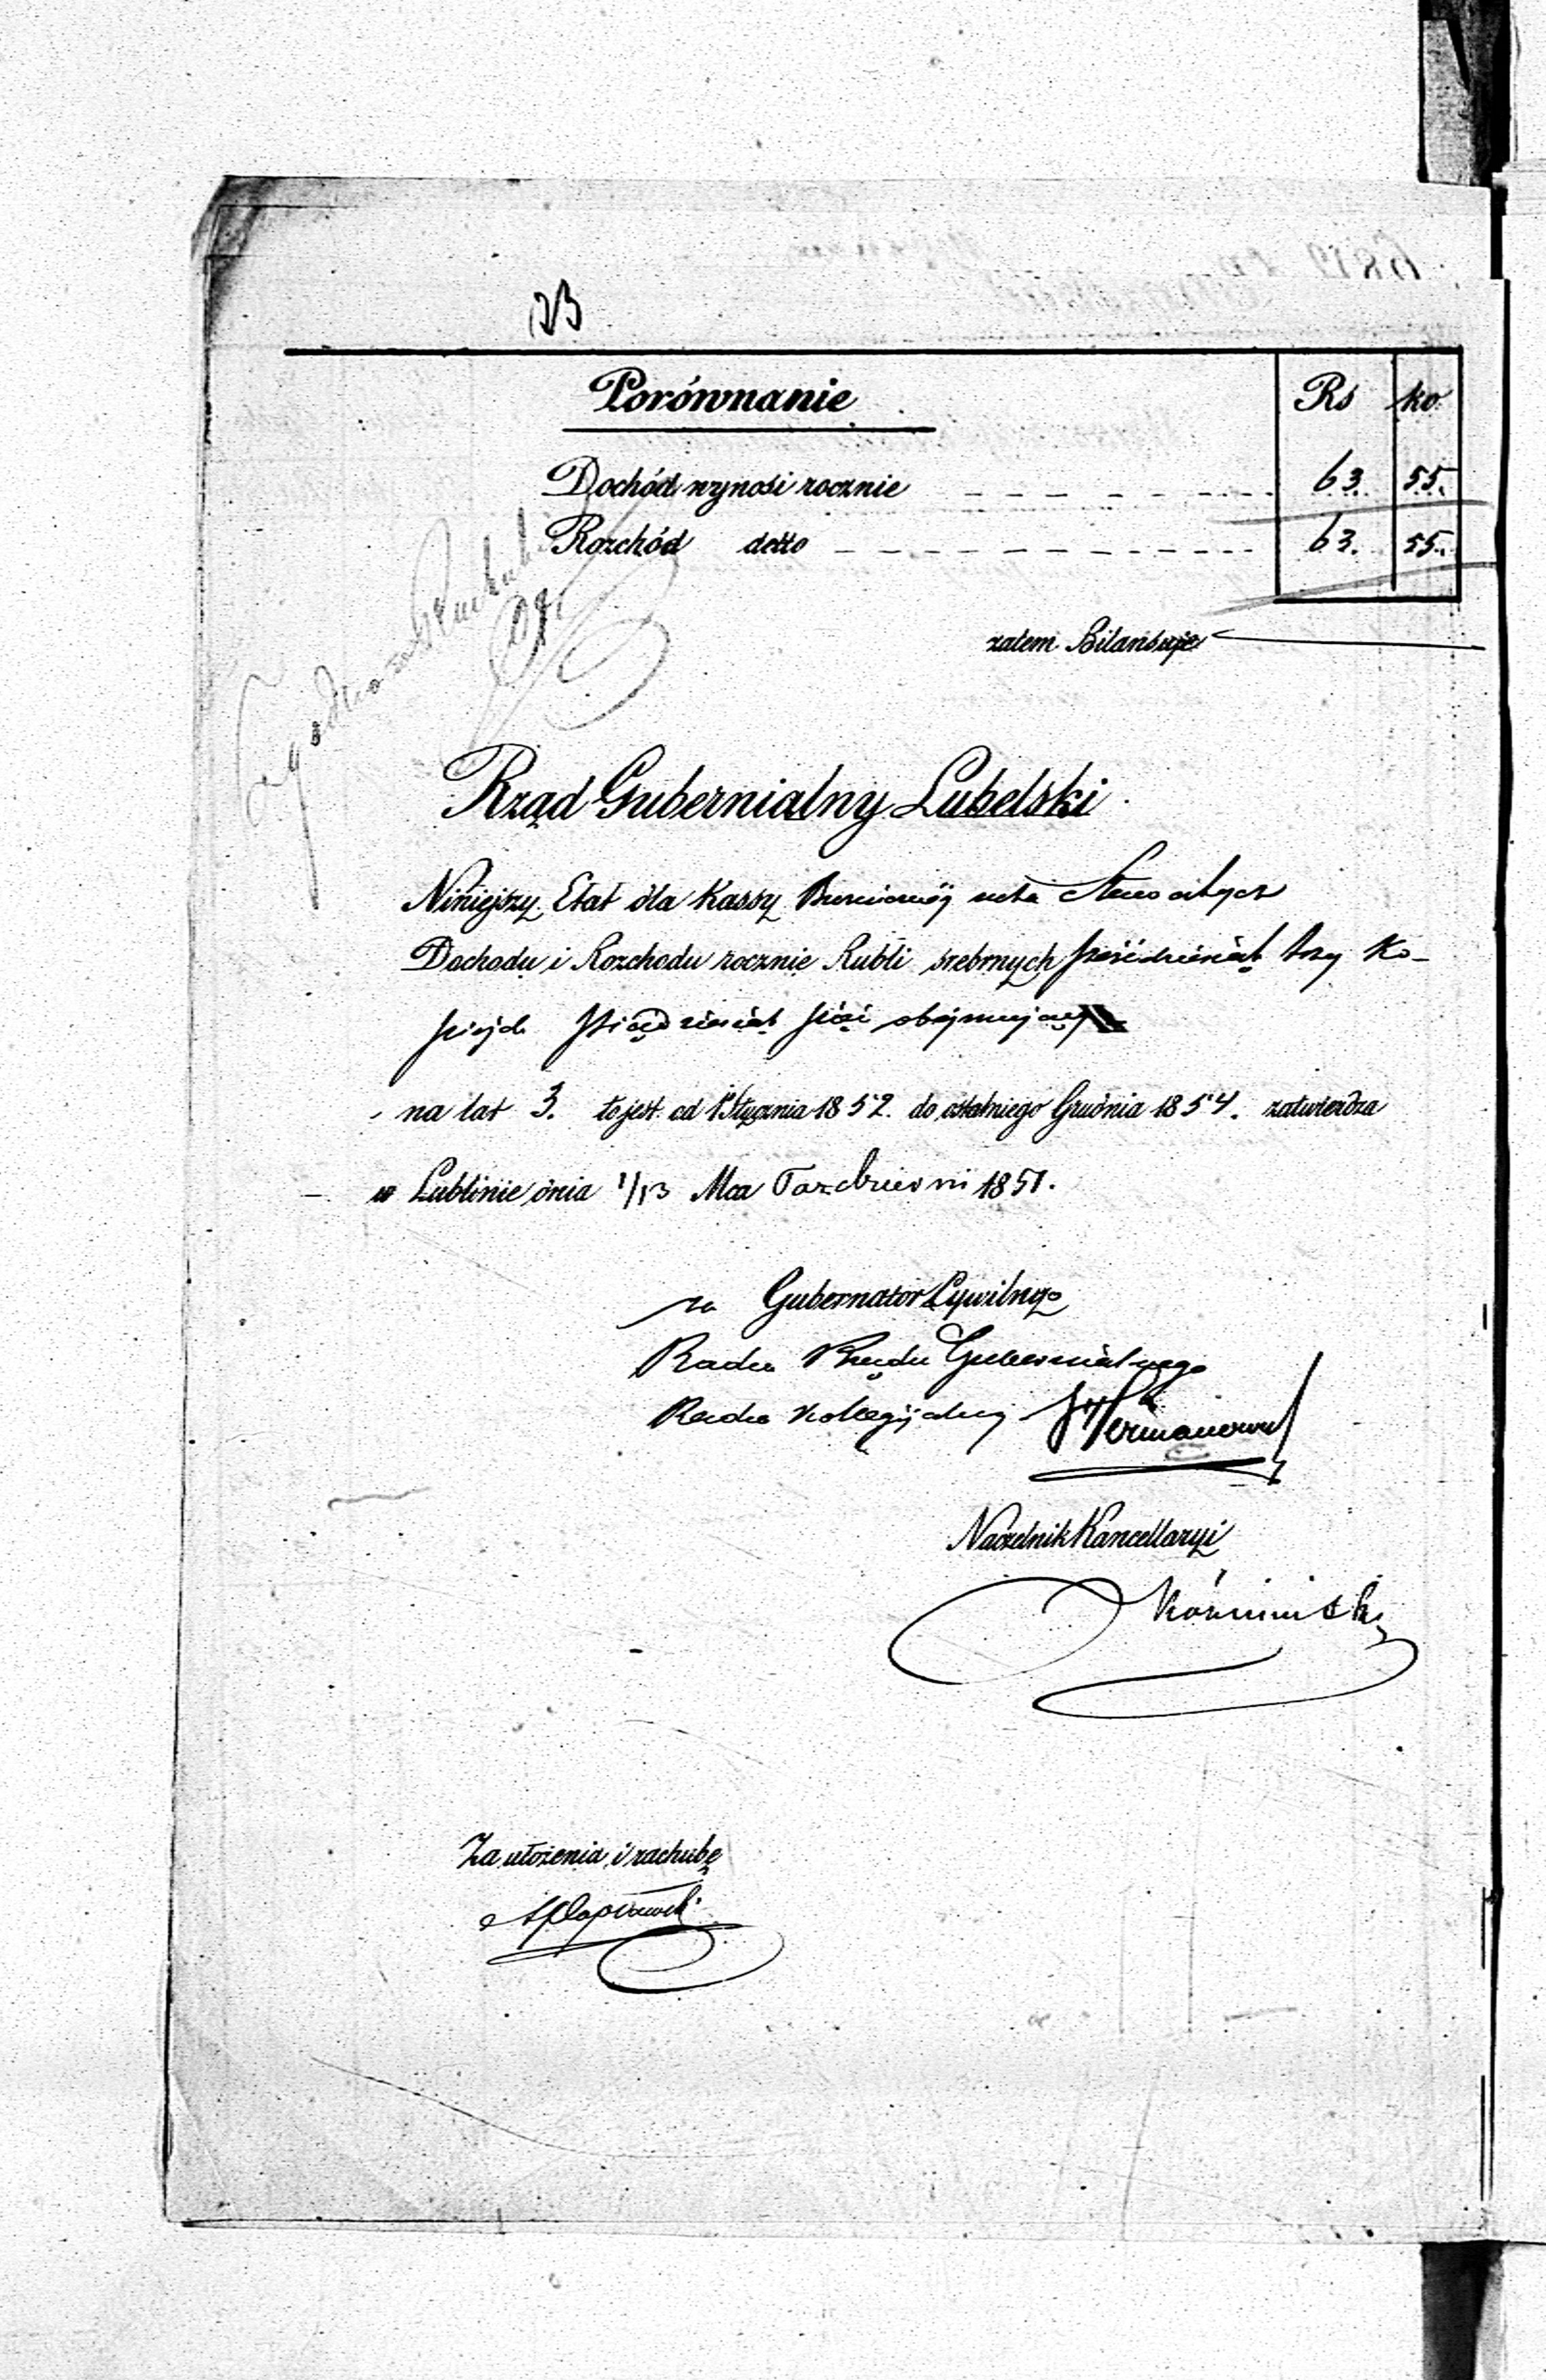 Porównanie
Rs ko
Dochód wynosi rocznie 63. 55.
Rozchód detto 63. 55.
zatem Bilansuje
Rząd Gubernialny Lubelski
Niniejszy Etat dla Kassy
Dochodu i Rozchodu rocznie Rubli srebrnych sześćdziesiąt trzy Ko-
piejek pięćdziesiąt pięć obejmujący
na lat 3. to jest od 1 Stycznia 1852. do ostatniego Grudnia 1854. zatwierdza
w Lublinie dnia 1/13 Mca Października 1851.
za Gubernator Cywilnego
Radca Rządu Gubernialnego
Radca Kollegijalny
Naczelnik Kancellaryi
Za ułożenia i rachubę